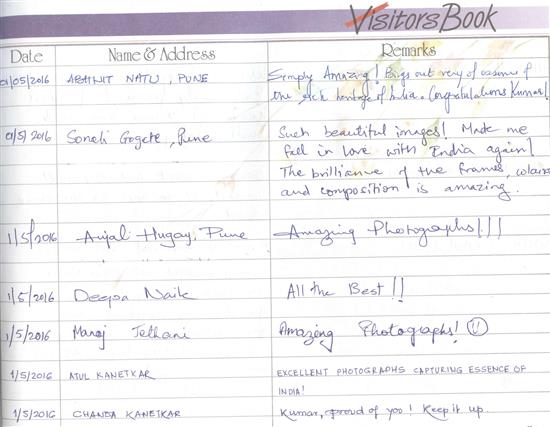 Visitors Book
Date Name & Address Remarks
01/05/2016 ABHIJIT NATU, PUNE Simply Amazing! Brigs out very of essence of
the rich heritage of India. Congratulations Kumar!
1/5/2016 Sonali Gogate, Pune Such beautiful images! Made me
fall in love with India again!
The brilliance of the frames, colours
and composition is amazing.
1/5/2016 Anjali Hugay, Pune Amazing Photographs!!!
1/5/2016 Deepa Naik All the Best!!
1/5/2016 Manoj Jethani Amazing Photographs!
1/5/2016 ATUL KANETKAR EXCELLENT PHOTOGRAPHS CAPTURING ESSENCE OF
INDIA!
1/5/2016 CHANDA KANETKAR Kumar, proud of you! Keep it up.